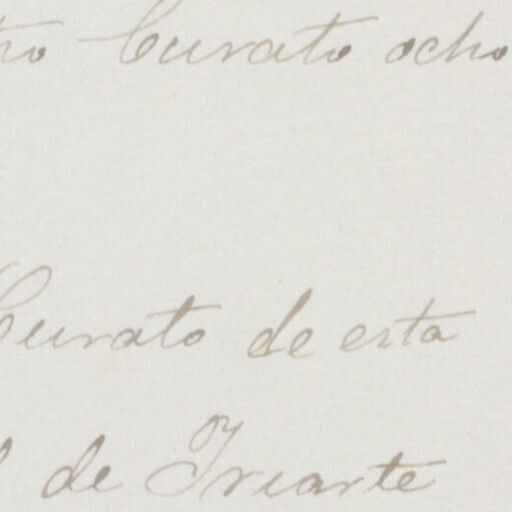 Curato ocho
Curato de esta
de Iriarte